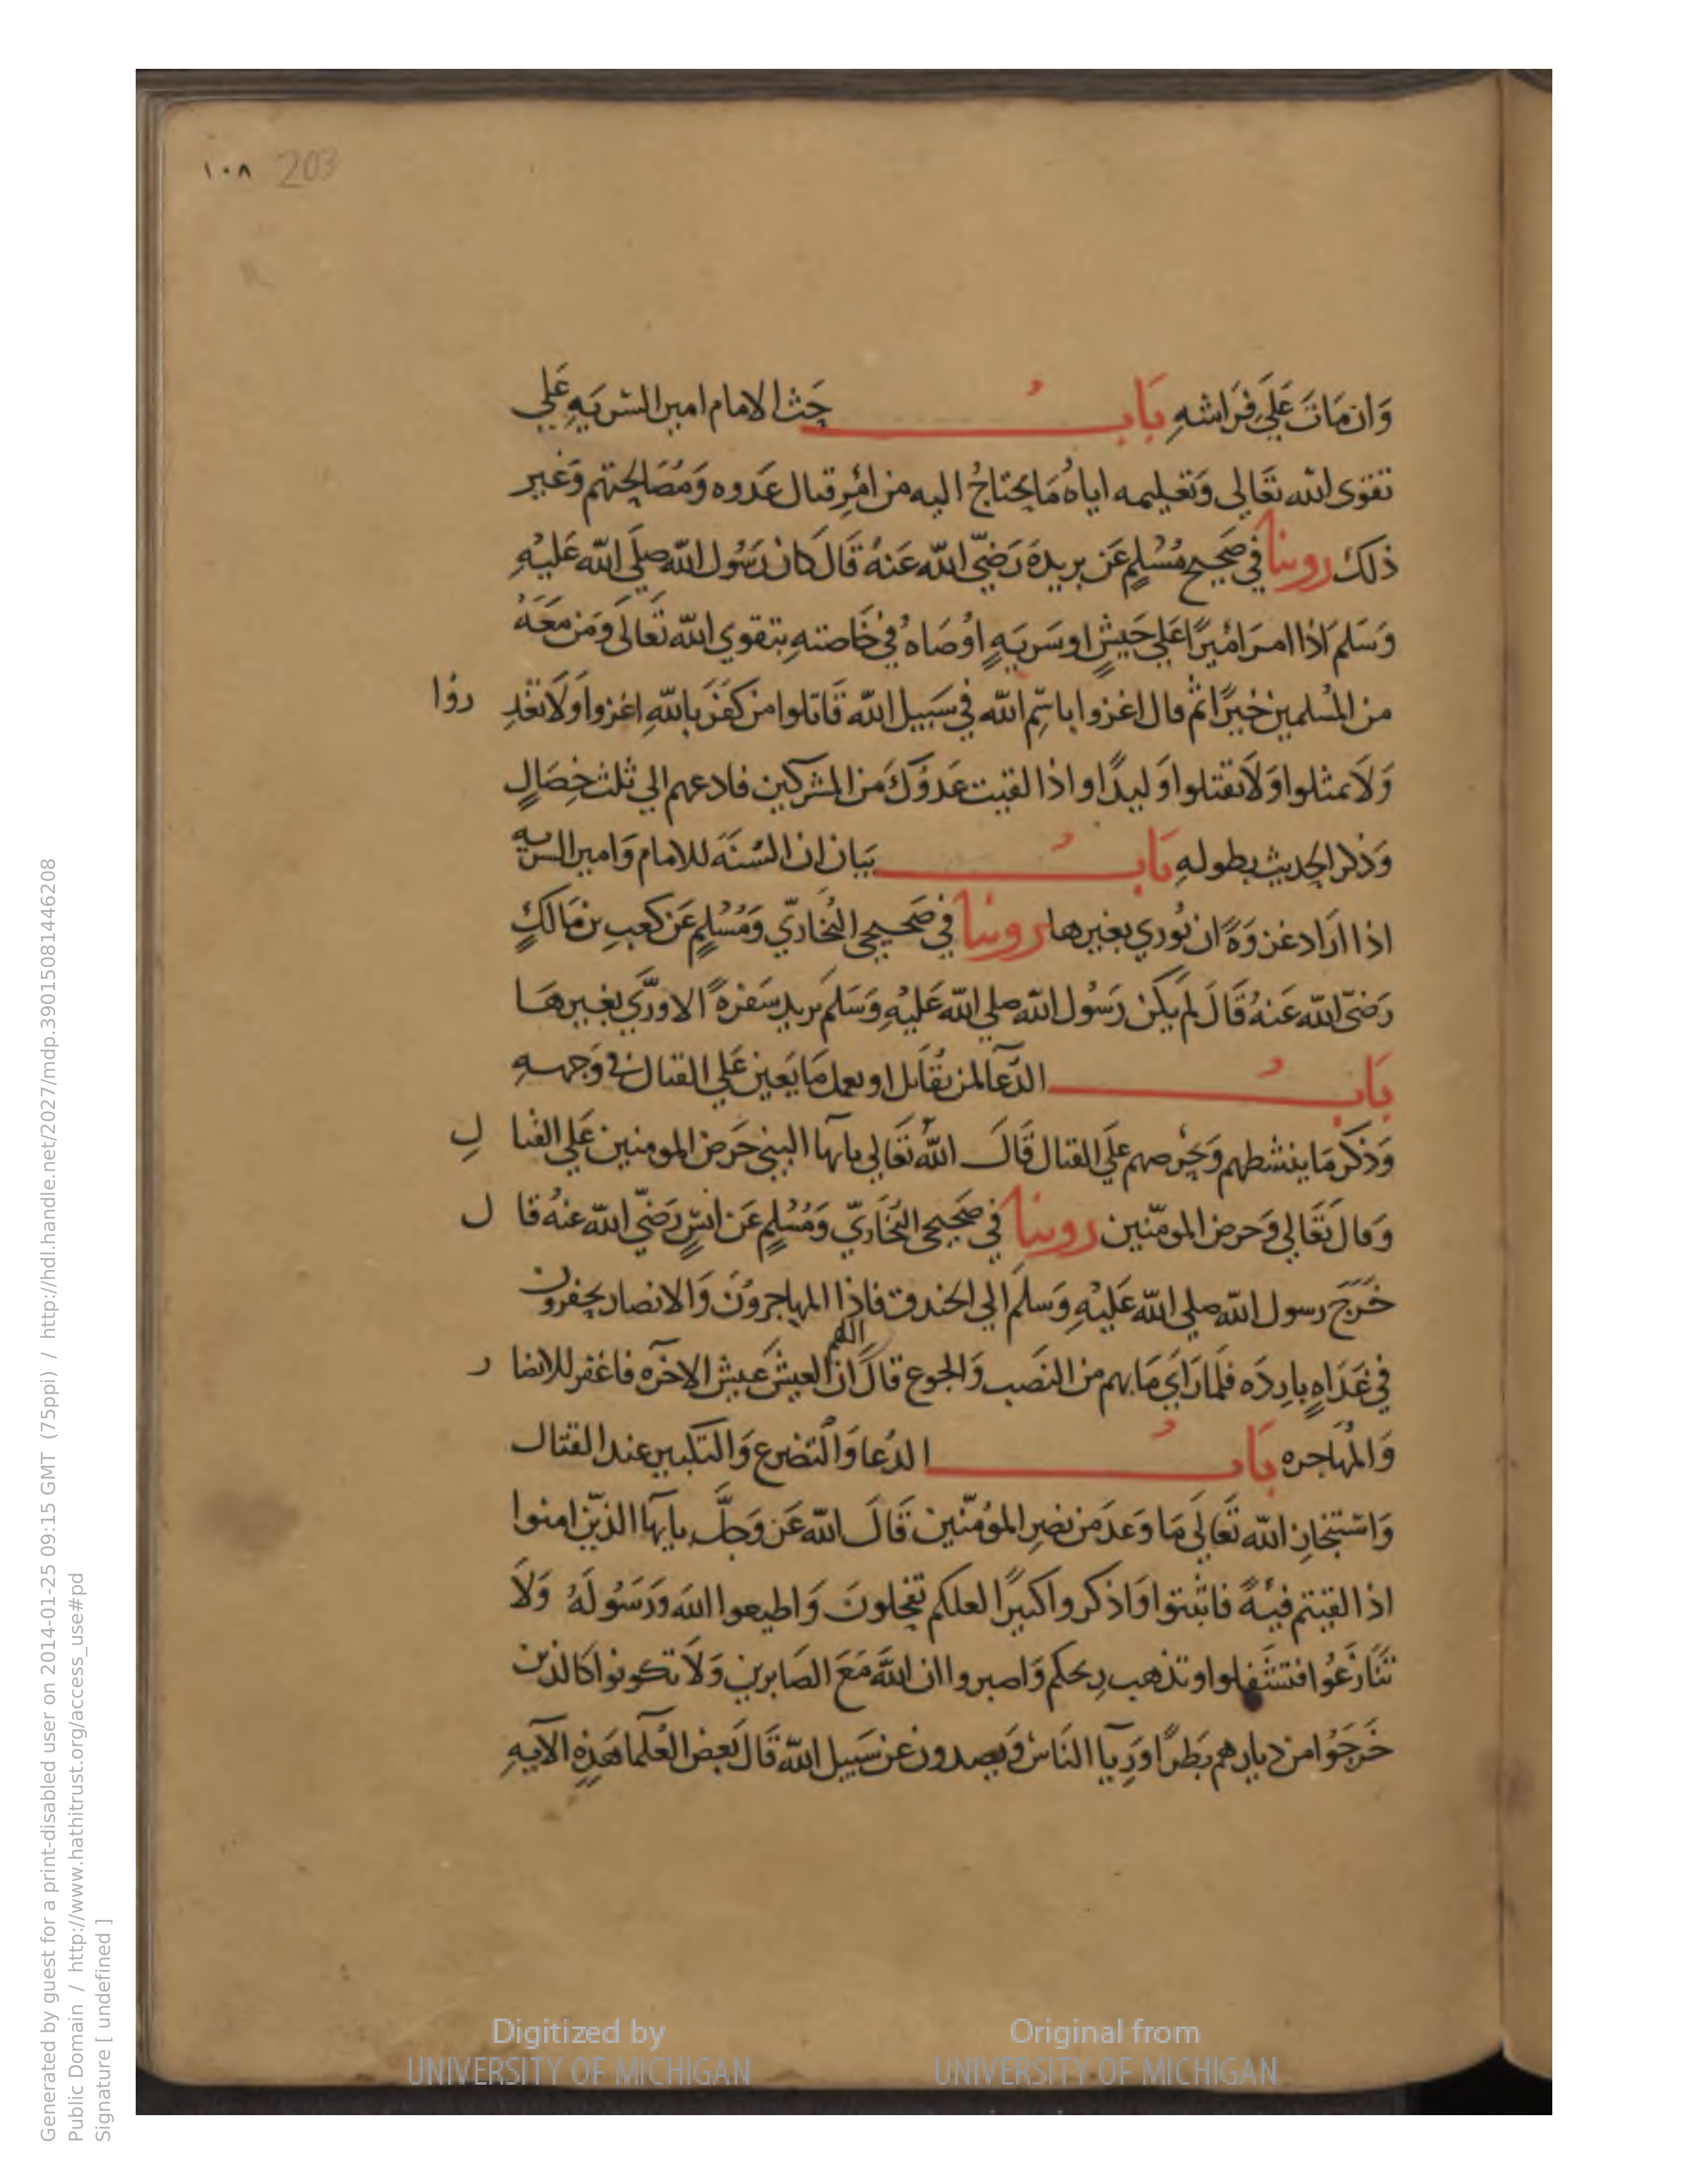 ١٠٨ 203
وَان مَاتَ عَلَي فِرَاشهِ بَابُ حَث الامام امير السريَهِ عَلي
تقوى الله تعَالى وَتعَليمه اياهُ مَا يحتاجُ اليه من امْرِ قتال عَدوه وَمُصَالحتهم وَغير
ذلك روينا في صَحيح مُسْلمٍ عَن بريدةَ رَضيّ الله عَنهُ قَالَ كان رَسُول الله صلي الله عَليْهِ
وَسَلم اذا امر امْيرًا عَلي جَيشٍ او سَريَهٍ اوْصَاهُ في خَاصتهِ بتقوي الله تَعالى وَمَن مَعَهُ
من المُسلمين خيْرًا ثم قال اغزوا باسْمِ الله في سَبيل الله قَاتلوا من كفَرَ بالله اغزوا وَلَا تغْدِ روْا
وَلاَ تمثلوا وَلَا تقتلوا وَليدًا واذا لقيت عَدُوَّكَ من المشركين فادعهم الي ثلث خصَالٍ
وَذكر الحديث بطوله بَابُ بَيان ان السُنَة للامام وَامير السريه
اذا ارَاد غزوَةً ان يُوري بغيرها روينا في صَحيحي البُخاريّ وَمُسْلمٍ عَن كعبِ بن مَالكٍ
رَضيّ الله عَنهُ قَالَ لم يَكن رَسُول الله صلي الله عَليْهِ وَسَلم يريد سَفرةً الا ورَّي بغيرهَا
بَابُ الدُعَا لمن يقَاتل او يعمل مَا يَعين عَلي القتال في وَجهه
وَذكر مَا ينشطهم وَيحرضهم علَي القتال قَالَ اللهُ تعَالي يايها النبي حَرض المومنين عَلي القتا لِ
وَقال تعَالي وَحرض المومنين روينا في صَحيحي البُخَاريّ وَمُسْلمٍ عَن انسٍ رَضيّ الله عنهُ قا ل
خَرَجَ رسول الله صلي الله عَليْهِ وَسلم الي الخندق فاذا المهاجروُنَ وَالانصار يحفرون
في غَدَاهٍ باردَه فلما رَاي مَا بهم من النصَب وَالجوع قالَ اللهم ان العيش عيش الاخرَه فاغفر للانصا ر
وَالمُهَاجره بَابُ الدُعا وَالتضرع وَالتكبير عند القتال
وَاسْتنجاز الله تَعالَي مَا وَعدَ من نصْرِ الموُمنين قَالَ الله عَز وَجلَّ يايها الذيْن امنوا
اذا لقيتم فيَةً فاثبتوا وَاذكروا كثيرًا لعلكم تفلحون وَاطيعوا اللهَ وَرَسُولَهُ وَلَا
تنَازعُوا فتَفشلوا وتذهب ريحكم وَاصبروا ان اللهَ مَعَ الصَابرين وَلَا تكونوا كالذين
خَرجَوُا من ديارهم بَطرًا وَريآ الناسْ وَيصدون عن سَبيل الله قَالَ بَعض العُلما هَذهِ الآيهِ
Digitized by
UNIVERSITY OF MICHIGAN
Original from
UNIVERSITY OF MICHIGAN
Generated by guest for a print-disabled user on 2014-01-25 09:15 GMT (75ppi) / http://hdl.handle.net/2027/mdp.39015081446208
Public Domain / http://www.hathitrust.org/access_use#pd
Signature [ undefined ]